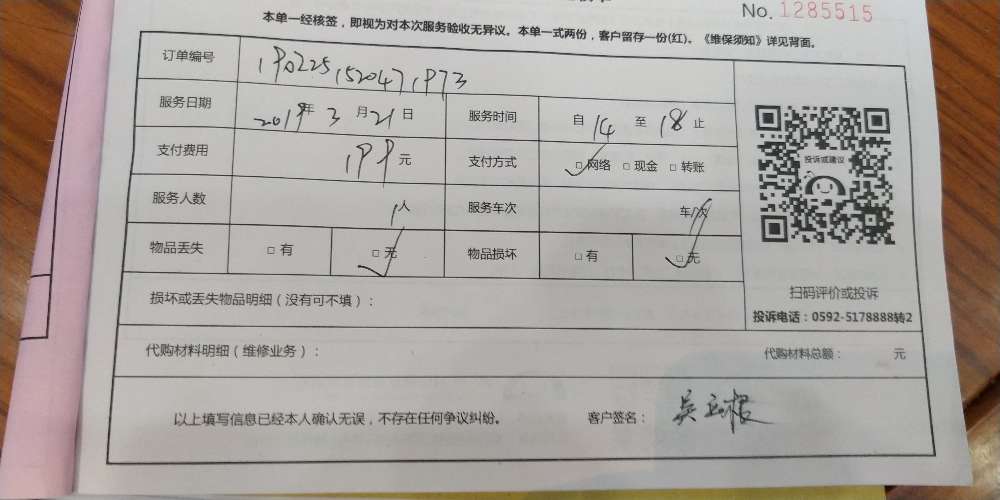 No. 1285515
本单一经核签，即视为对本次服务验收无异议。本单一式两份，客户留存一份(红)。《维保须知》详见背面。
订单编号 1902251520471973
服务日期 2019年 3 月 21 日 服务时间 自 14 至 18 止
支付费用 199 元 支付方式 □网络 □现金 □转账
服务人数 1人 服务车次 车/次
物品丢失 □有 □无 物品损坏 □有 □无
投诉或建议
扫码评价或投诉
投诉电话：0592-5178888转2
损坏或丢失物品明细（没有可不填）：
代购材料明细（维修业务）： 代购材料总额： 元
以上填写信息已经本人确认无误，不存在任何争议纠纷。 客户签名：吴玉根